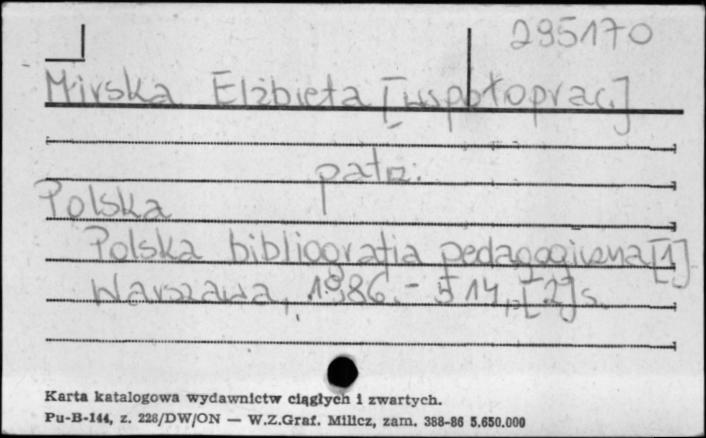 295170
Mirska Elżbieta [współoprac.]
patrz:
Polska
Polska bibliografia pedagogiczna [1]
Warszawa, 1986. - 514, [2] s.
Karta katalogowa wydawnictw ciągłych i zwartych.
Pu-B-144, z. 228/DW/ON — W.Z.Graf. Milicz, zam. 388-86 5.650.000